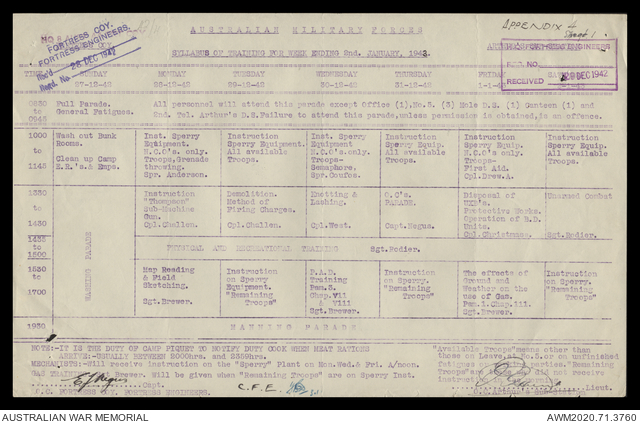 APPENDIX 4
Sheet 1
AUSTRALIAN MILITARY FORCES
FORTRESS COY.
FORTRESS ENGINEERS.
Rec'd. 28 DEC 1942
SYLLABUS OF TRAINING FOR WEEK ENDING 2nd. JANUARY, 1943.
FORTRESS ENGINEERS
REG. NO.
RECEIVED 29 DEC 1942
TIME SUNDAY MONDAY TUESDAY WEDNESDAY THURSDAY FRIDAY
27-12-42 28-12-42 29-12-42 30-12-42 31-12-42 1-1-
0830 to 0945
Full Parade.
General Fatigues.
All personnel will attend this parade except Office (1).No.S. (3) Hole D.G. (1) Canteen (1) and
2nd. Tel. Arthur's D.S.Failure to attend this parade,unless permission is obtained,is an offence.
1000 to 1145
Wash out Bunk Rooms.
Clean up Camp
Inst. Sperry Equipment. N.C.O's.only. Troops,Grenade throwing. Spr. Anderson.
Instruction Sperry Equipment. All available Troops
Inst. Sperry Equipment. N.C.O's only. Troops- Semaphore.
Instruction Sperry Equip. All available Troops.
Inst. Sperry Equip. N.C.O's only. Troops- First Aid. Cpl.Brew.A.
Instruction Sperry Equip. All available Troops.
1330 to 1430
WARNING PARADE
Instruction "Thompson" Sub-Machine Gun. Cpl.Challen.
Demolition. Method of Firing Charges. Cpl.Challen.
Knotting & Lashing. Cpl.West.
O.C's. PARADE. Capt.Negus.
Disposal of UXB's. Protective Works. Operation of B.D. Units. Cpl.Christmas.
Unarmed Combat Sgt.Rodier.
1435 to 1500
PHYSICAL AND RECREATIONAL TRAINING Sgt.Rodier.
1530 to 1700
Map Reading & Field Sketching. Sgt.Brewer.
Instruction on Sperry Equipment. "Remaining Troops"
P.A.D. Training Pam.3. Chap.VII & VIII Sgt.Brewer.
Instruction on Sperry. "Remaining Troops"
The effects of Ground and Weather on the use of Gas. Pam.1.Chap.iii. Sgt.Brewer.
Instruction on Sperry. "Remaining Troops"
1930 MANNING PARADE
NOTE:-IT IS THE DUTY OF CAMP PIQUET TO NOTIFY DUTY COOK WHEN MEAT RATIONS
ARRIVE:-USUALLY BETWEEN 2000hrs. and 2359hrs.
MECHANISTS:-Will receive instruction on the "Sperry" Plant on Mon.Wed.& Fri. A/noon.
Brewer. Will be given when "Remaining Troops" are on Sperry Inst.
"Available Troops"means other than
those on Leave,at No.S.or on unfinished
fatigues parties."Remaining
Troops"are did not receive
instruction in
Capt.
C.F.E.
Lieut.
AUSTRALIAN WAR MEMORIAL
AWM2020.71.3760